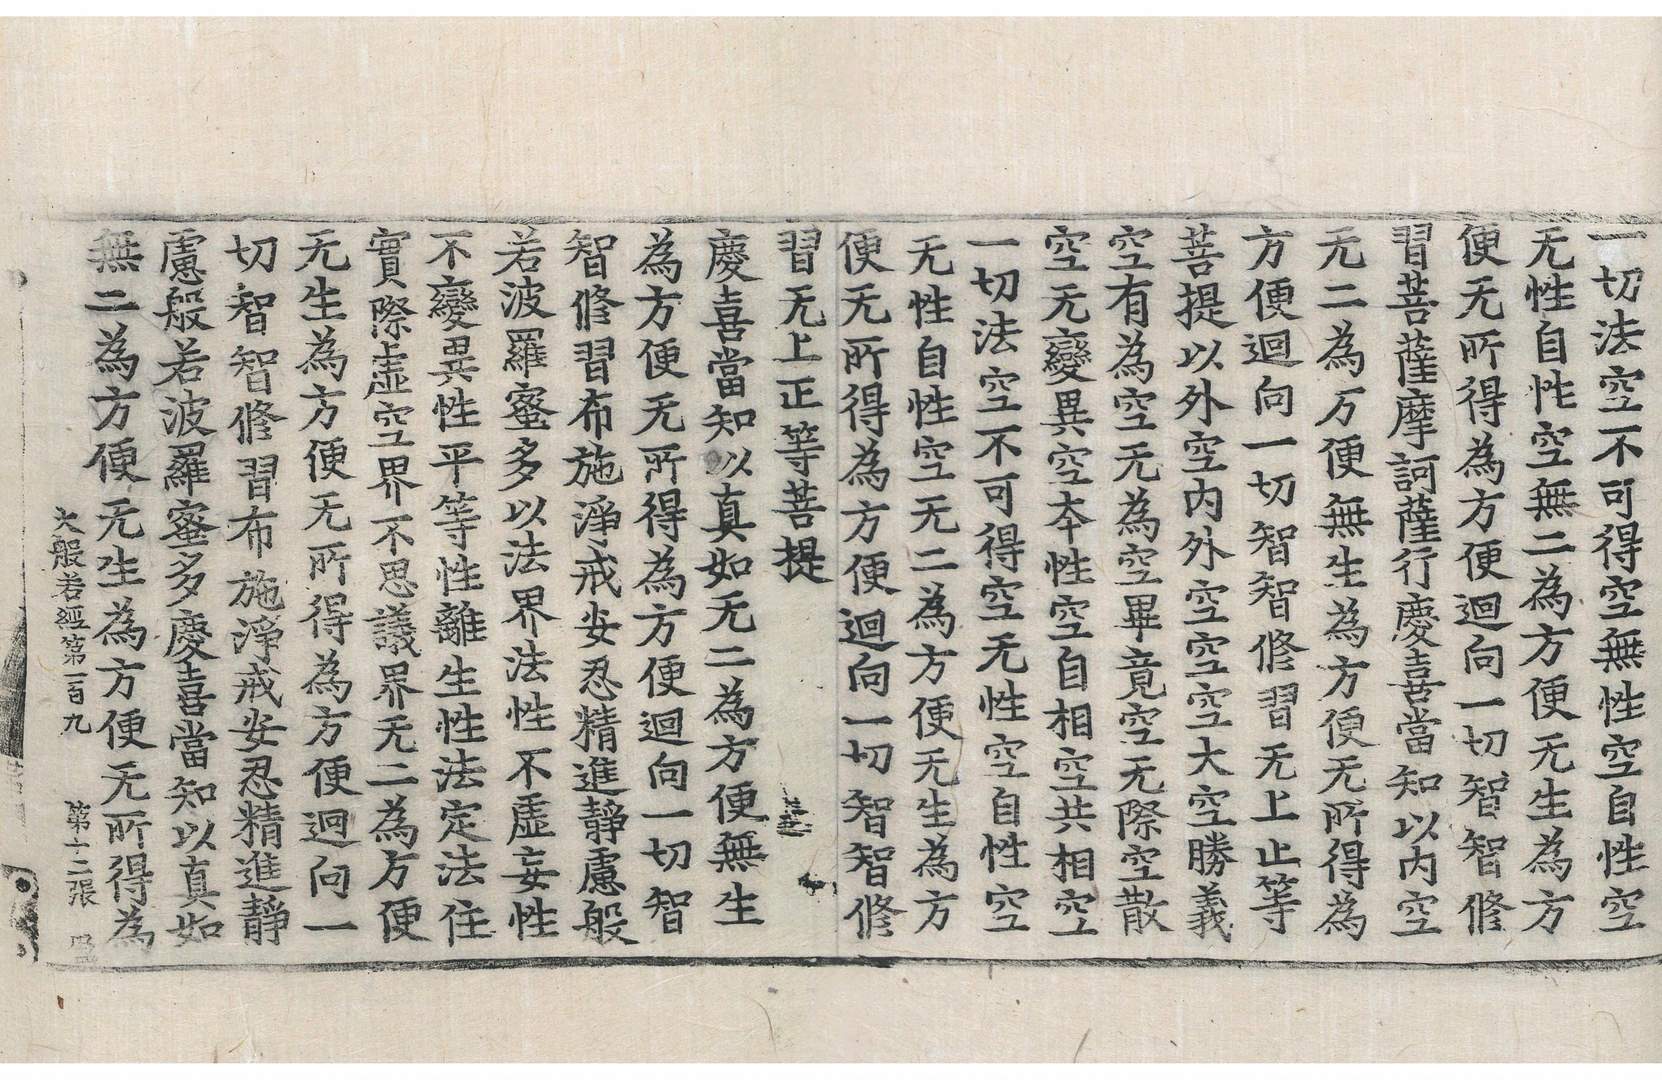 一切法空不可得空無性空自性空
无性自性空無二為方便无生為方
便无所得為方便迴向一切智智修
習菩薩摩訶薩行慶喜當知以内空
无二為方便無生為方便无所得為
方便迴向一切智智修習无上正等
菩提以外空内外空空空大空勝義
空有為空无為空畢竟空无際空散
空无變異空本性空自相空共相空
一切法空不可得空无性空自性空
无性自性空无二為方便无生為方
便无所得為方便迴向一切智智修
習无上正等菩提
慶喜當知以真如无二為方便無生
為方便无所得為方便迴向一切智
智修習布施淨戒安忍精進靜慮般
若波羅蜜多以法界法性不虛妄性
不變異性平等性離生性法定法住
實際虛空界不思議界无二為方便
无生為方便无所得為方便迴向一
切智智修習布施淨戒安忍精進靜
慮般若波羅蜜多慶喜當知以真如
無二為方便无生為方便无所得為
大般若經第一百九 第十二張